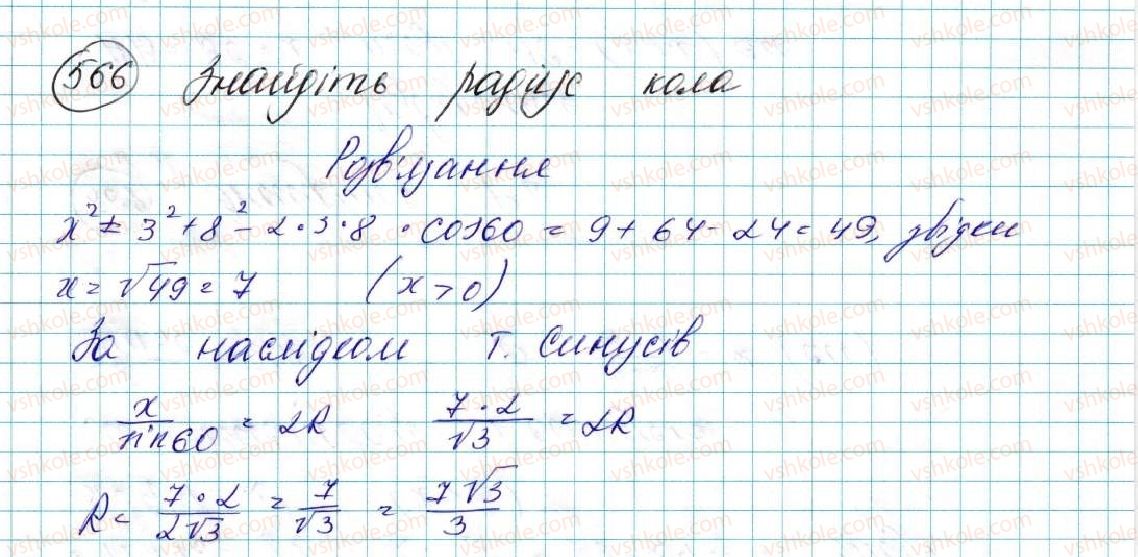 566 Знайдіть радіус кола
Розв'язання
x² = 3² + 8² - 2·3·8 · cos60 = 9 + 64 - 24 = 49, звідки
x = √49 = 7 (x > 0)
За наслідком т. синусів
x/sin60 = 2R 7·2/√3 = 2R
R = 7·2/2√3 = 7/√3 = 7√3/3